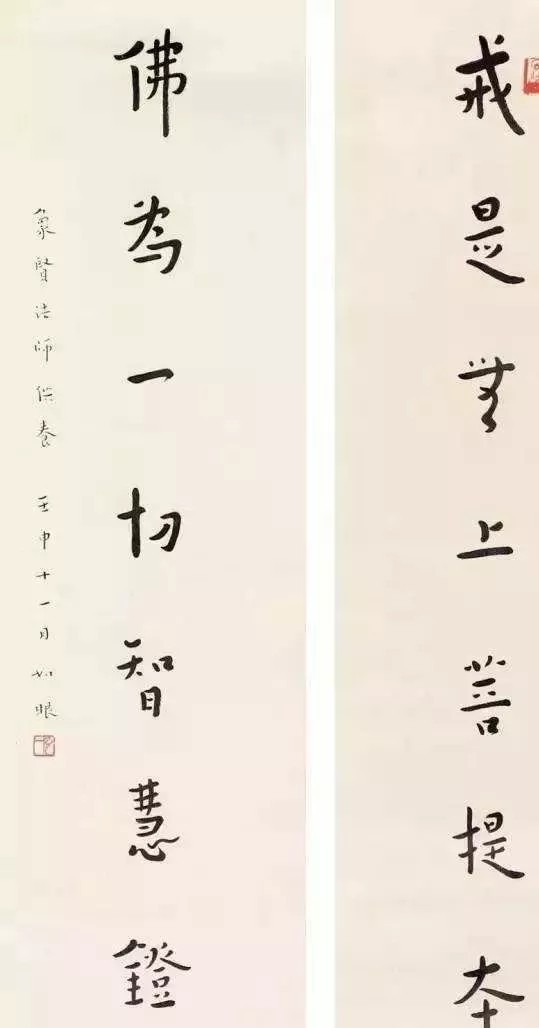 戒是無上菩提本
佛為一切智慧鐙
象賢法師供養 壬申十一月 如眼